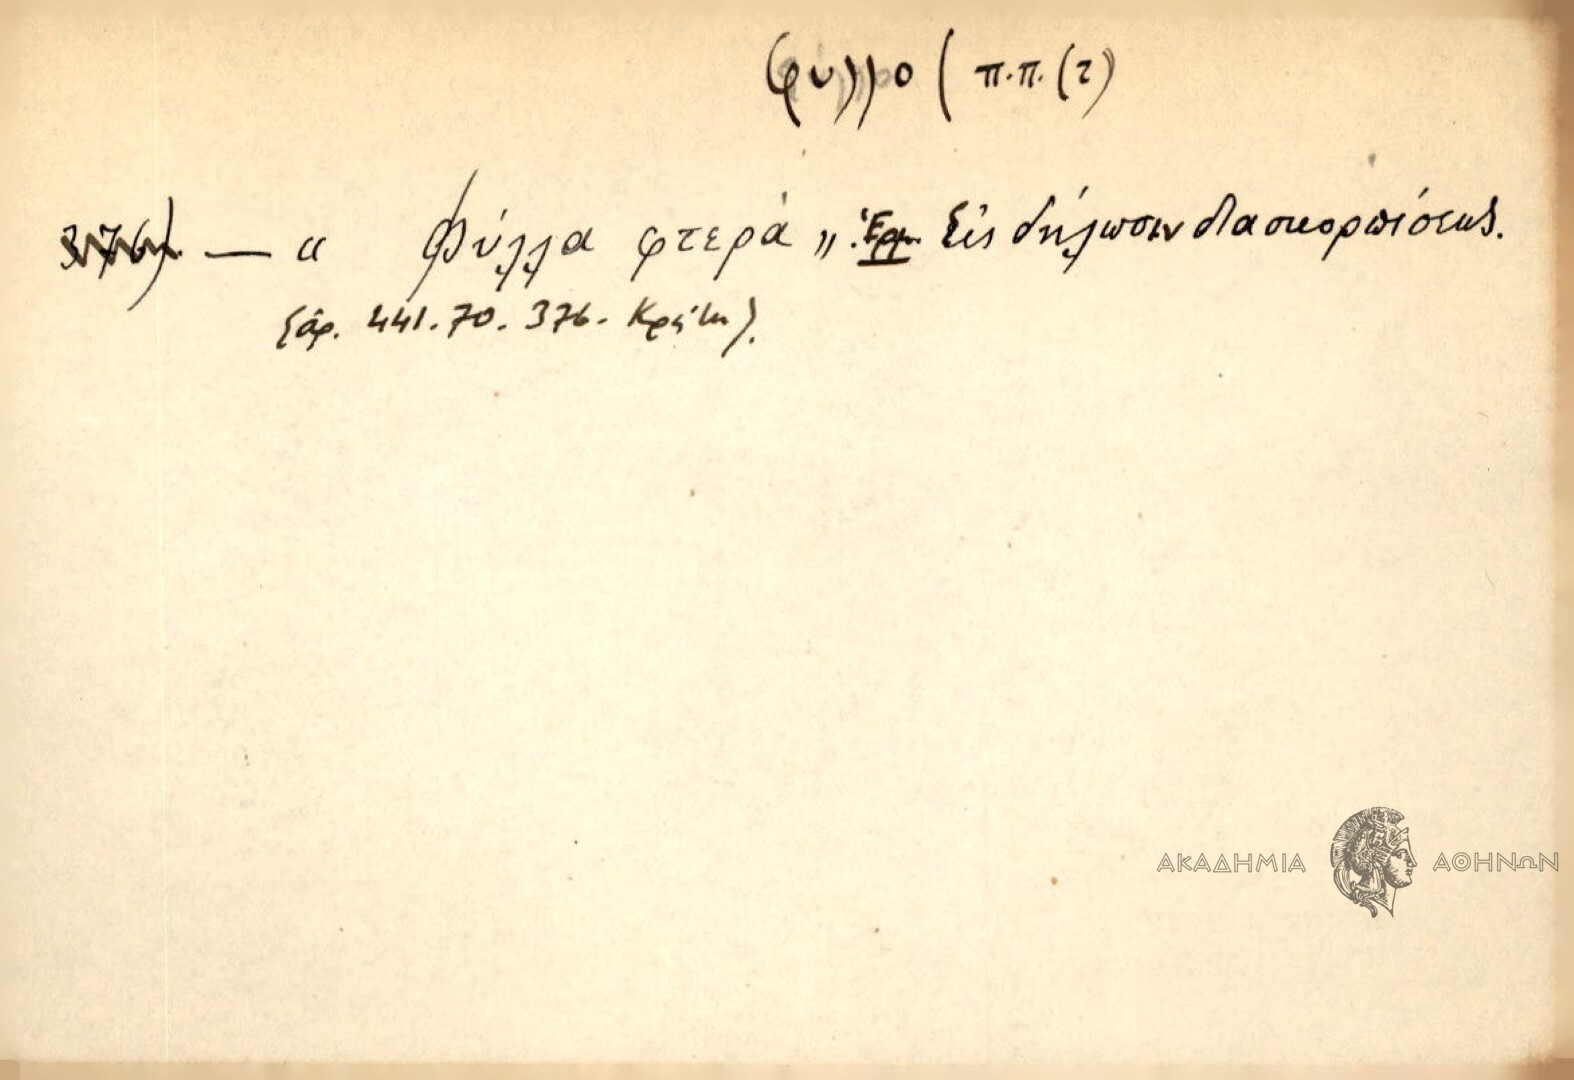 φύλλο ( π.π. (τ)
376) — « Φύλλα φτερά „ Ἑρμ. Εἰς δήλωσιν διασκορπίσεως.
(ἀρ. 441. 70. 376. Κρήτη).
ΑΚΑΔΗΜΙΑ ΑΘΗΝΩΝ